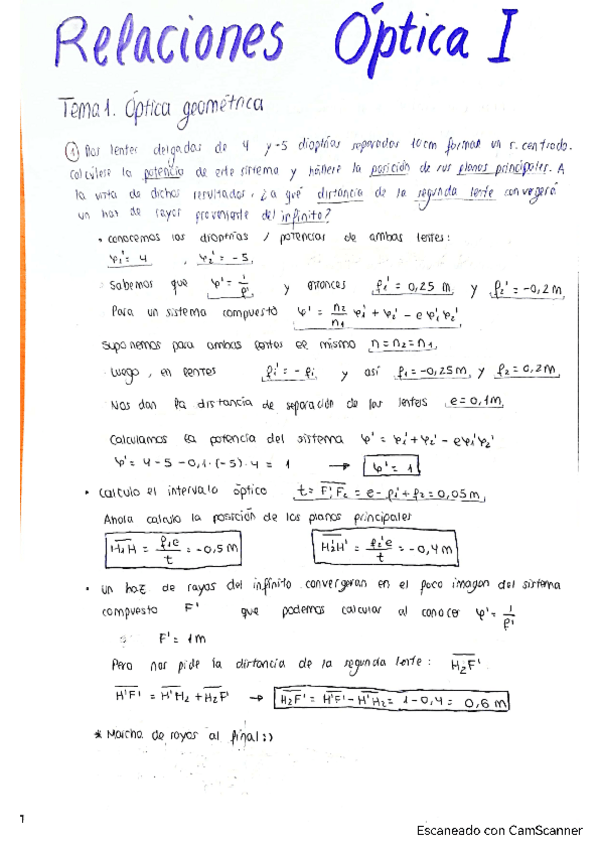 Relaciones Óptica I
Tema 1. Óptica geométrica
① Dos lentes delgadas de 4 y -5 dioptrías separadas 10cm forman un s. centrado.
Calcúlese la potencia de este sistema y hállese la posición de sus planos principales. A
la vista de dichos resultados, ¿a qué distancia de la segunda lente convergerá
un haz de rayos proveniente del infinito?
• conocemos las dioptrías / potencias de ambas lentes:
φ₁' = 4 , φ₂' = -5,
Sabemos que φ' = 1/f' y entonces f₁' = 0,25 m y f₂' = -0,2 m
Para un sistema compuesto φ' = n₂/n₁ φ₁' + φ₂' - e φ₁' φ₂'
Suponemos para ambas lentes el mismo n = n₂ = n₁,
Luego, en lentes fi' = - fi y así f₁ = -0,25 m, y f₂ = 0,2 m,
Nos dan la distancia de separación de las lentes e = 0,1 m,
Calculamos la potencia del sistema φ' = φ₁' + φ₂' - e φ₁' φ₂'
φ' = 4 - 5 - 0,1 · (-5) · 4 = 1 → φ' = 1
• Calculo el intervalo óptico t = F₁'F₂ = e - f₁' + f₂ = 0,05 m,
Ahora calculo la posición de los planos principales
H₁H = f₁e/t = -0,5 m H₂'H' = f₂'e/t = -0,4 m
• un haz de rayos del infinito convergeran en el foco imagen del sistema
compuesto F' que podemos calcular al conocer φ' = 1/f'
F' = 1 m
Pero nos pide la distancia de la segunda lente: H₂F'
H'F' = H'H₂ + H₂F' → H₂F' = H'F' - H'H₂ = 1 - 0,4 = 0,6 m
* Marcha de rayos al final :)
1
Escaneado con CamScanner